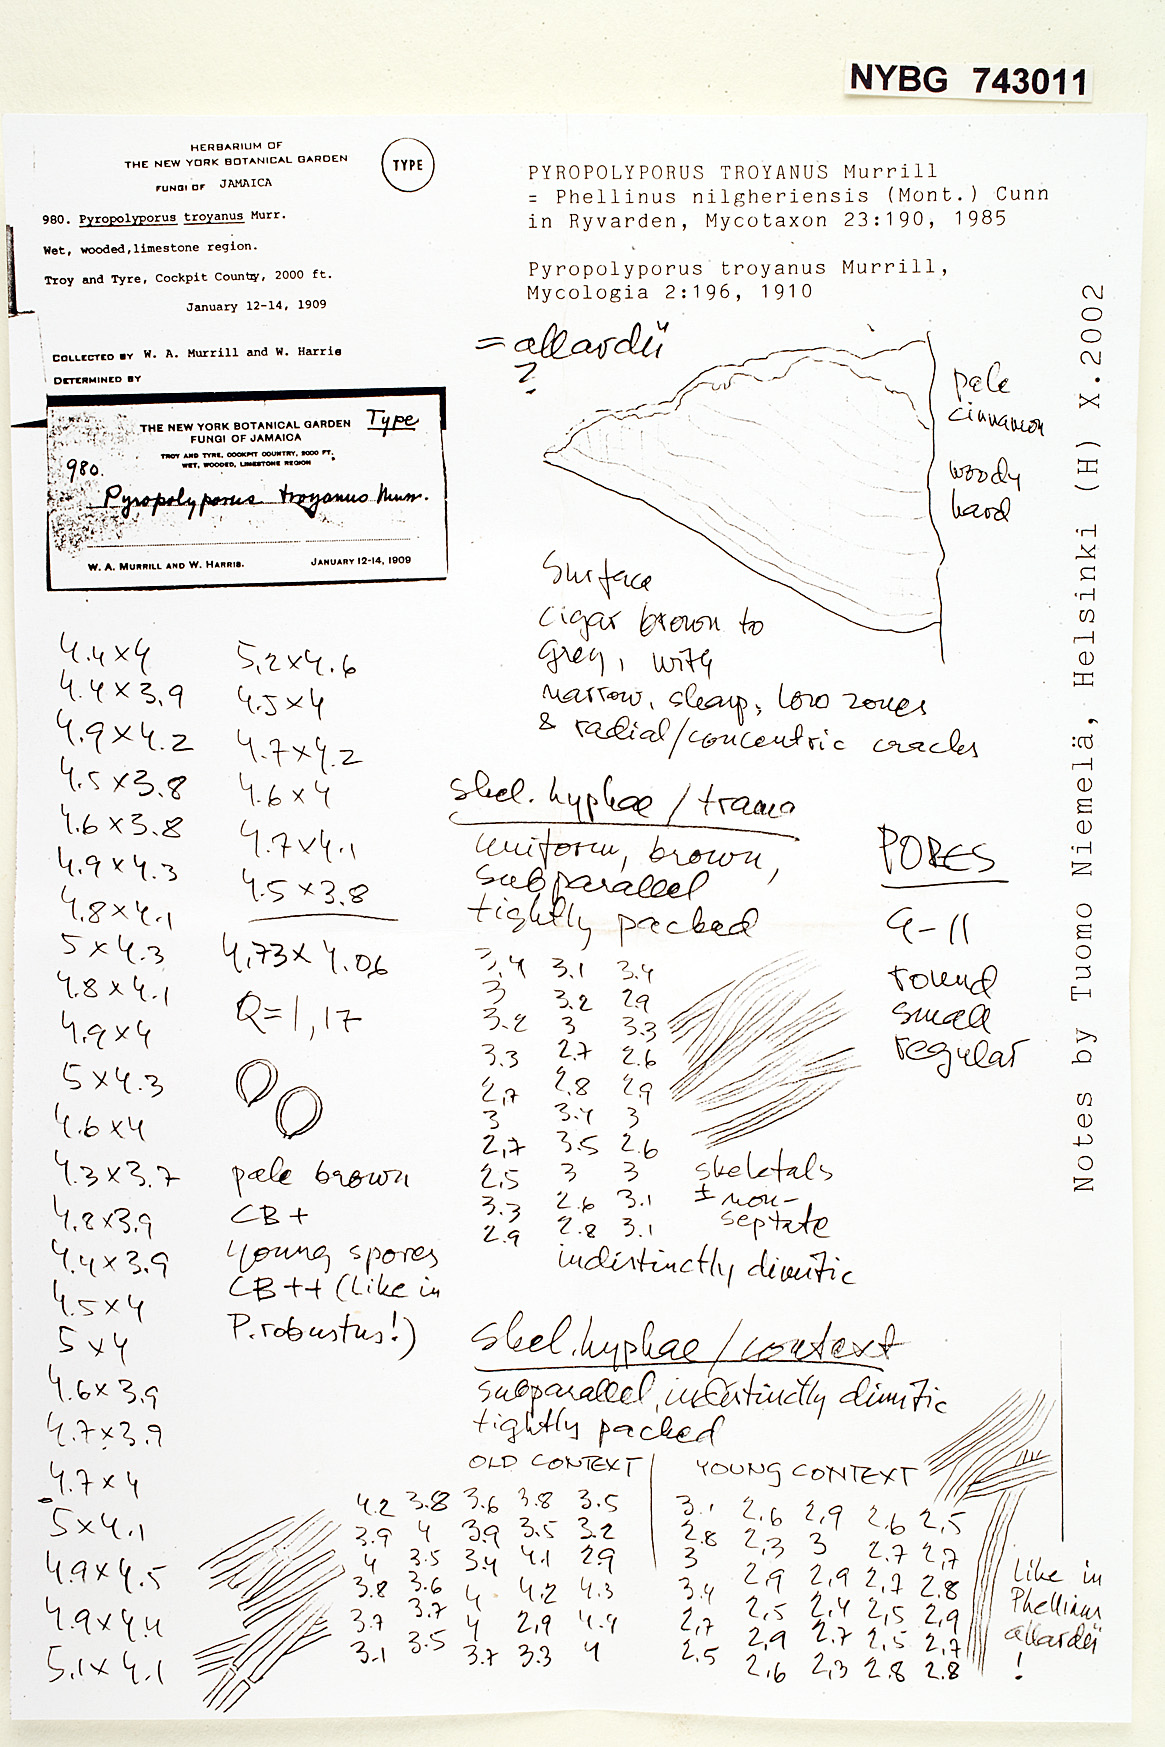 NYBG 743011
HERBARIUM OF
THE NEW YORK BOTANICAL GARDEN
FUNGI OF JAMAICA
TYPE
980. Pyropolyporus troyanus Murr.
Wet, wooded, limestone region.
Troy and Tyre, Cockpit County, 2000 ft.
January 12-14, 1909
COLLECTED BY W. A. Murrill and W. Harris
DETERMINED BY
THE NEW YORK BOTANICAL GARDEN Type
FUNGI OF JAMAICA
TROY AND TYRE, COCKPIT COUNTRY, 2000 FT.
WET, WOODED, LIMESTONE REGION
980.
Pyropolyporus troyanus Murr.
W. A. MURRILL AND W. HARRIS. JANUARY 12-14, 1909
PYROPOLYPORUS TROYANUS Murrill
= Phellinus nilgheriensis (Mont.) Cunn
in Ryvarden, Mycotaxon 23:190, 1985
Pyropolyporus troyanus Murrill,
Mycologia 2:196, 1910
= allardii
?
pale
cinnamon
woody
hard
Surface
cigar brown to
grey, with
narrow, sharp, low zones
& radial/concentric cracks
Notes by Tuomo Niemelä, Helsinki (H) X.2002
4.4 x 4
4.4 x 3.9
4.9 x 4.2
4.5 x 3.8
4.6 x 3.8
4.9 x 4.3
4.8 x 4.1
5 x 4.3
4.8 x 4.1
4.9 x 4
5 x 4.3
4.6 x 4
4.3 x 3.7
4.8 x 3.9
4.4 x 3.9
4.5 x 4
5 x 4
4.6 x 3.9
4.7 x 3.9
4.7 x 4
5 x 4.1
4.9 x 4.5
4.9 x 4.4
5.1 x 4.1
5.2 x 4.6
4.5 x 4
4.7 x 4.2
4.6 x 4
4.7 x 4.1
4.5 x 3.8
4,73 x 4.06
Q=1,17
pale brown
CB+
young spores
CB++ (like in
P. robustus!)
skel. hyphae / trama
uniform, brown,
subparallel
tightly packed
3,4 3.1 3.4
3 3.2 2.9
3.2 3 3.3
3.3 2.7 2.6
2,7 2.8 2.9
3 3.4 3
2,7 3.5 2.6
2,5 3 3
3.3 2.6 3.1
2.9 2.8 3.1
skeletals
± non-
septate
indistinctly dimitic
PORES
9-11
round
small
regular
skel. hyphae / context
subparallel, indistinctly dimitic
tightly packed
OLD CONTEXT
4.2 3.8 3.6 3.8 3.5
3.9 4 3.9 3.5 3.2
4 3.5 3.4 4.1 2.9
3.8 3.6 4 4.2 4.3
3.7 3.7 4 2,9 4.4
3.1 3.5 3.7 3.3 4
YOUNG CONTEXT
3.1 2,6 2,9 2,6 2,5
2.8 2,3 3 2.7 2,7
3 2,9 2,9 2,7 2.8
3.4 2,5 2,4 2,5 2,9
2,7 2,9 2.7 2,5 2,7
2.5 2,6 2,3 2.8 2.8
Like in
Phellinus
allardii
!